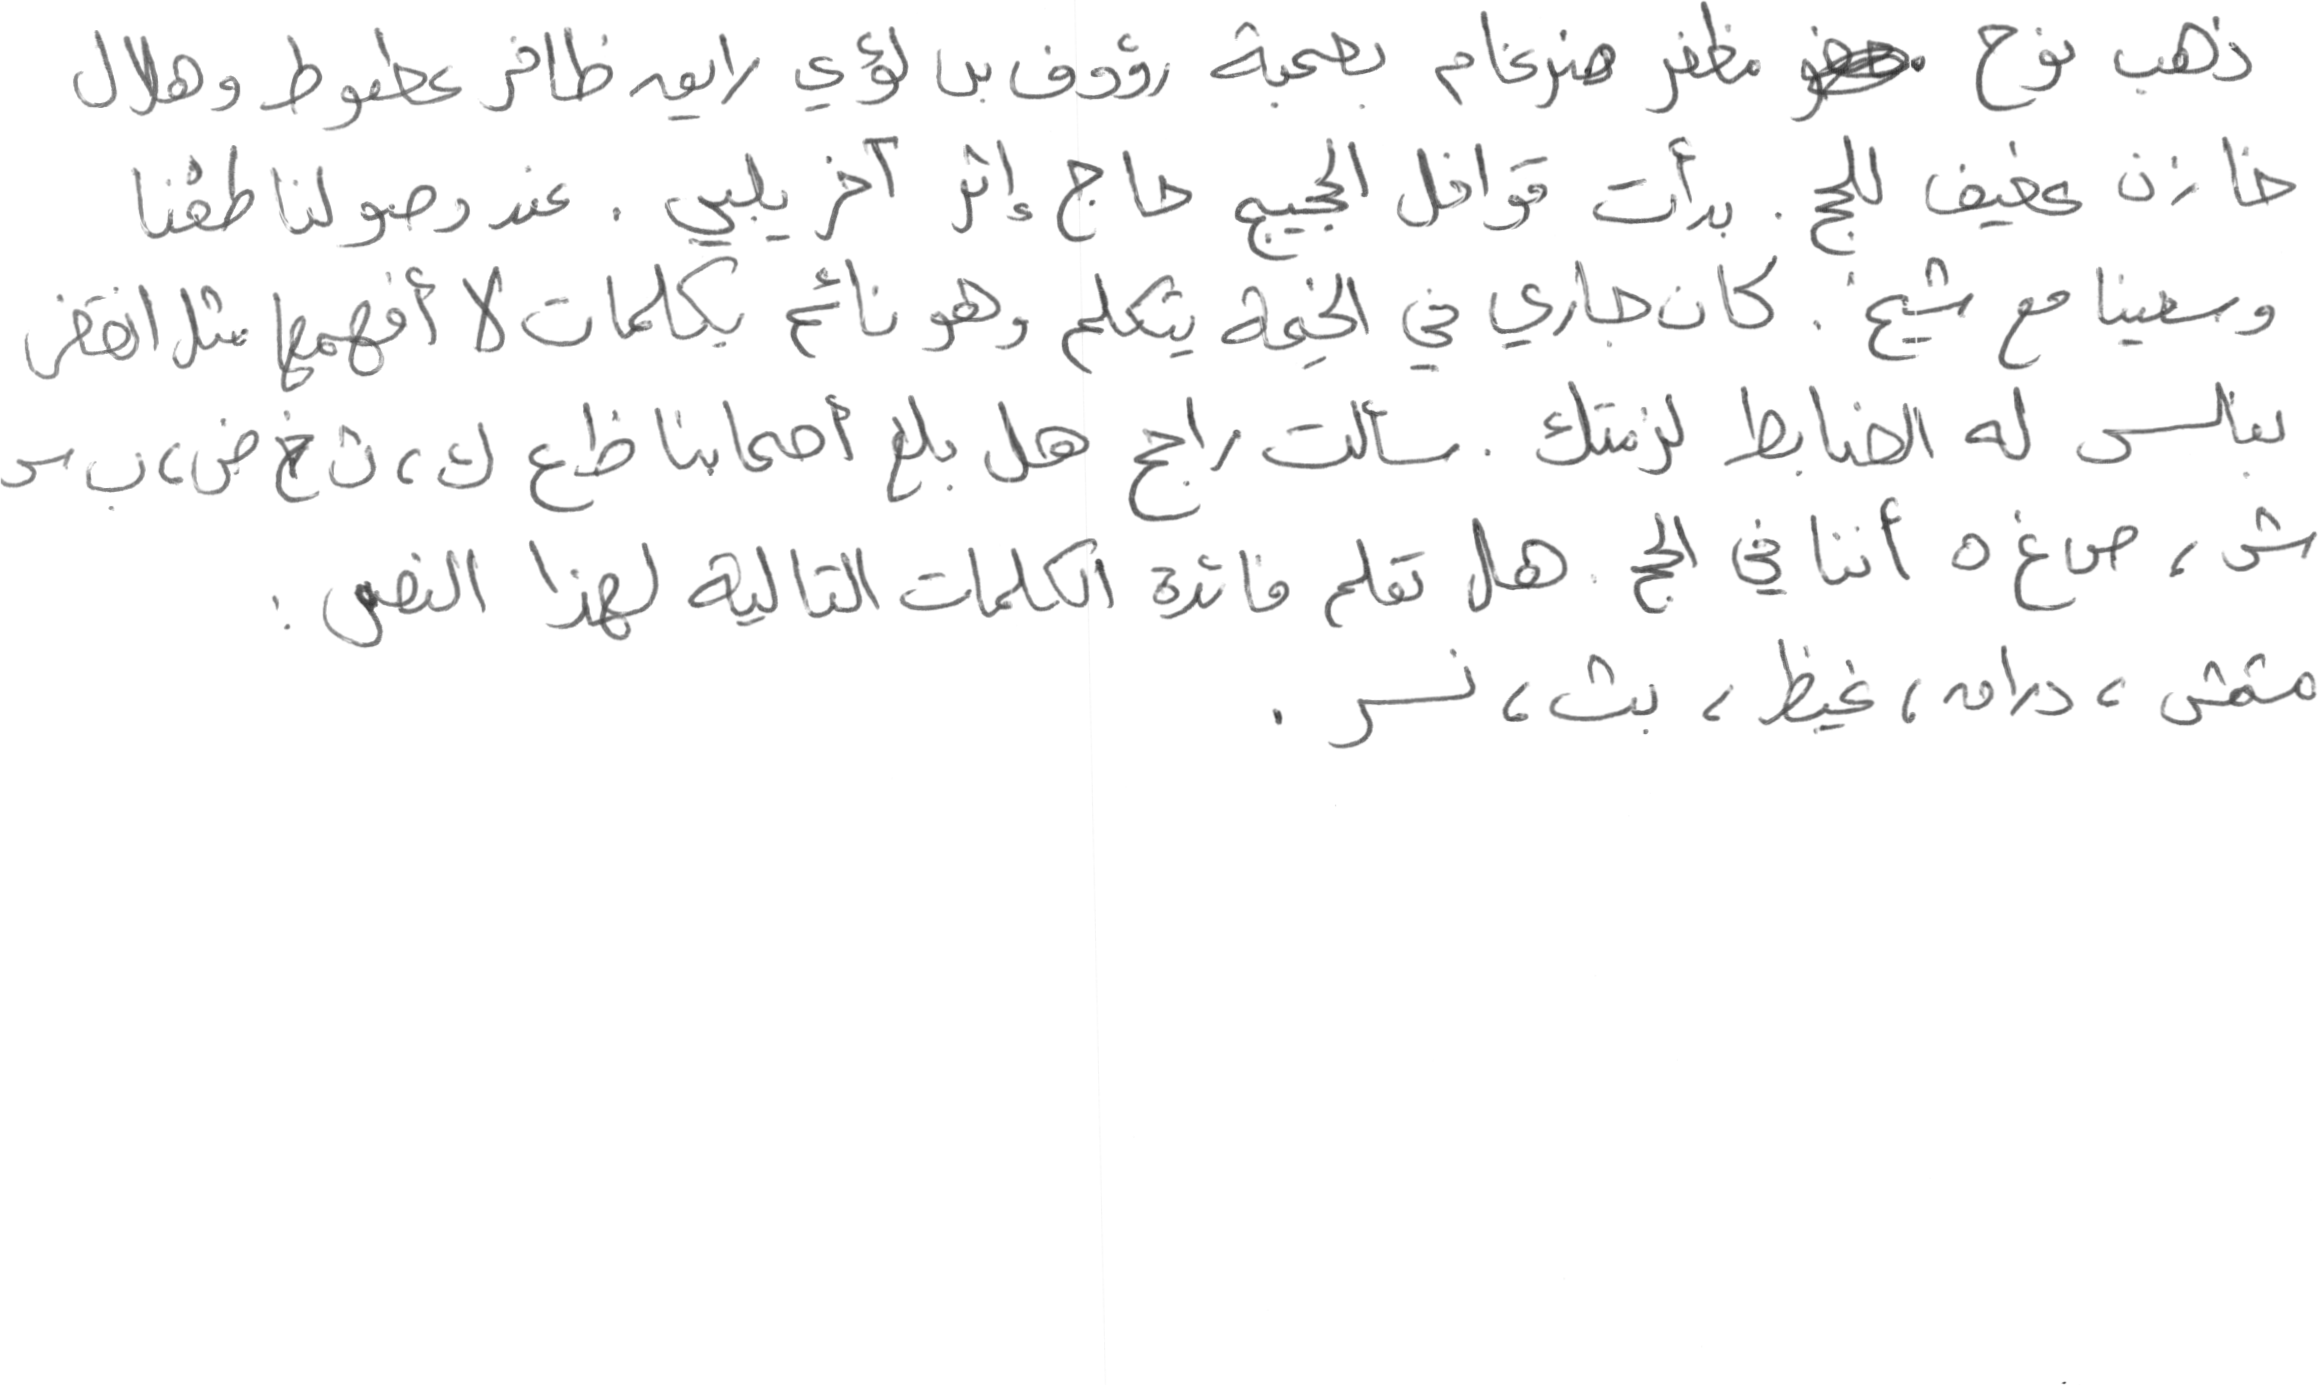 ذهب نوح مظفر ضرغام بصحبة رؤوف بن لؤي رايق ظافر عظوظ وهلال
خازن عفيف للحج . بدأت قوافل الحجيج حاج إثر آخر يلبي . عند وصولنا طفنا
وسعينا مع شيخ . كان جاري في الخيمة يتكلم وهو نائم بكلمات لا أفهمها مثل انقض
له الضابط لزمتك . سألت راجح هل بلغ أصحابنا ظ ع ك ، ث خ ض ، ب س
ش ، ص غ ه أننا في الحج . هل تعلم فائدة الكلمات التالية لهذا النص :
مشمش ، دراق ، غيظ ، بث ، نسر .